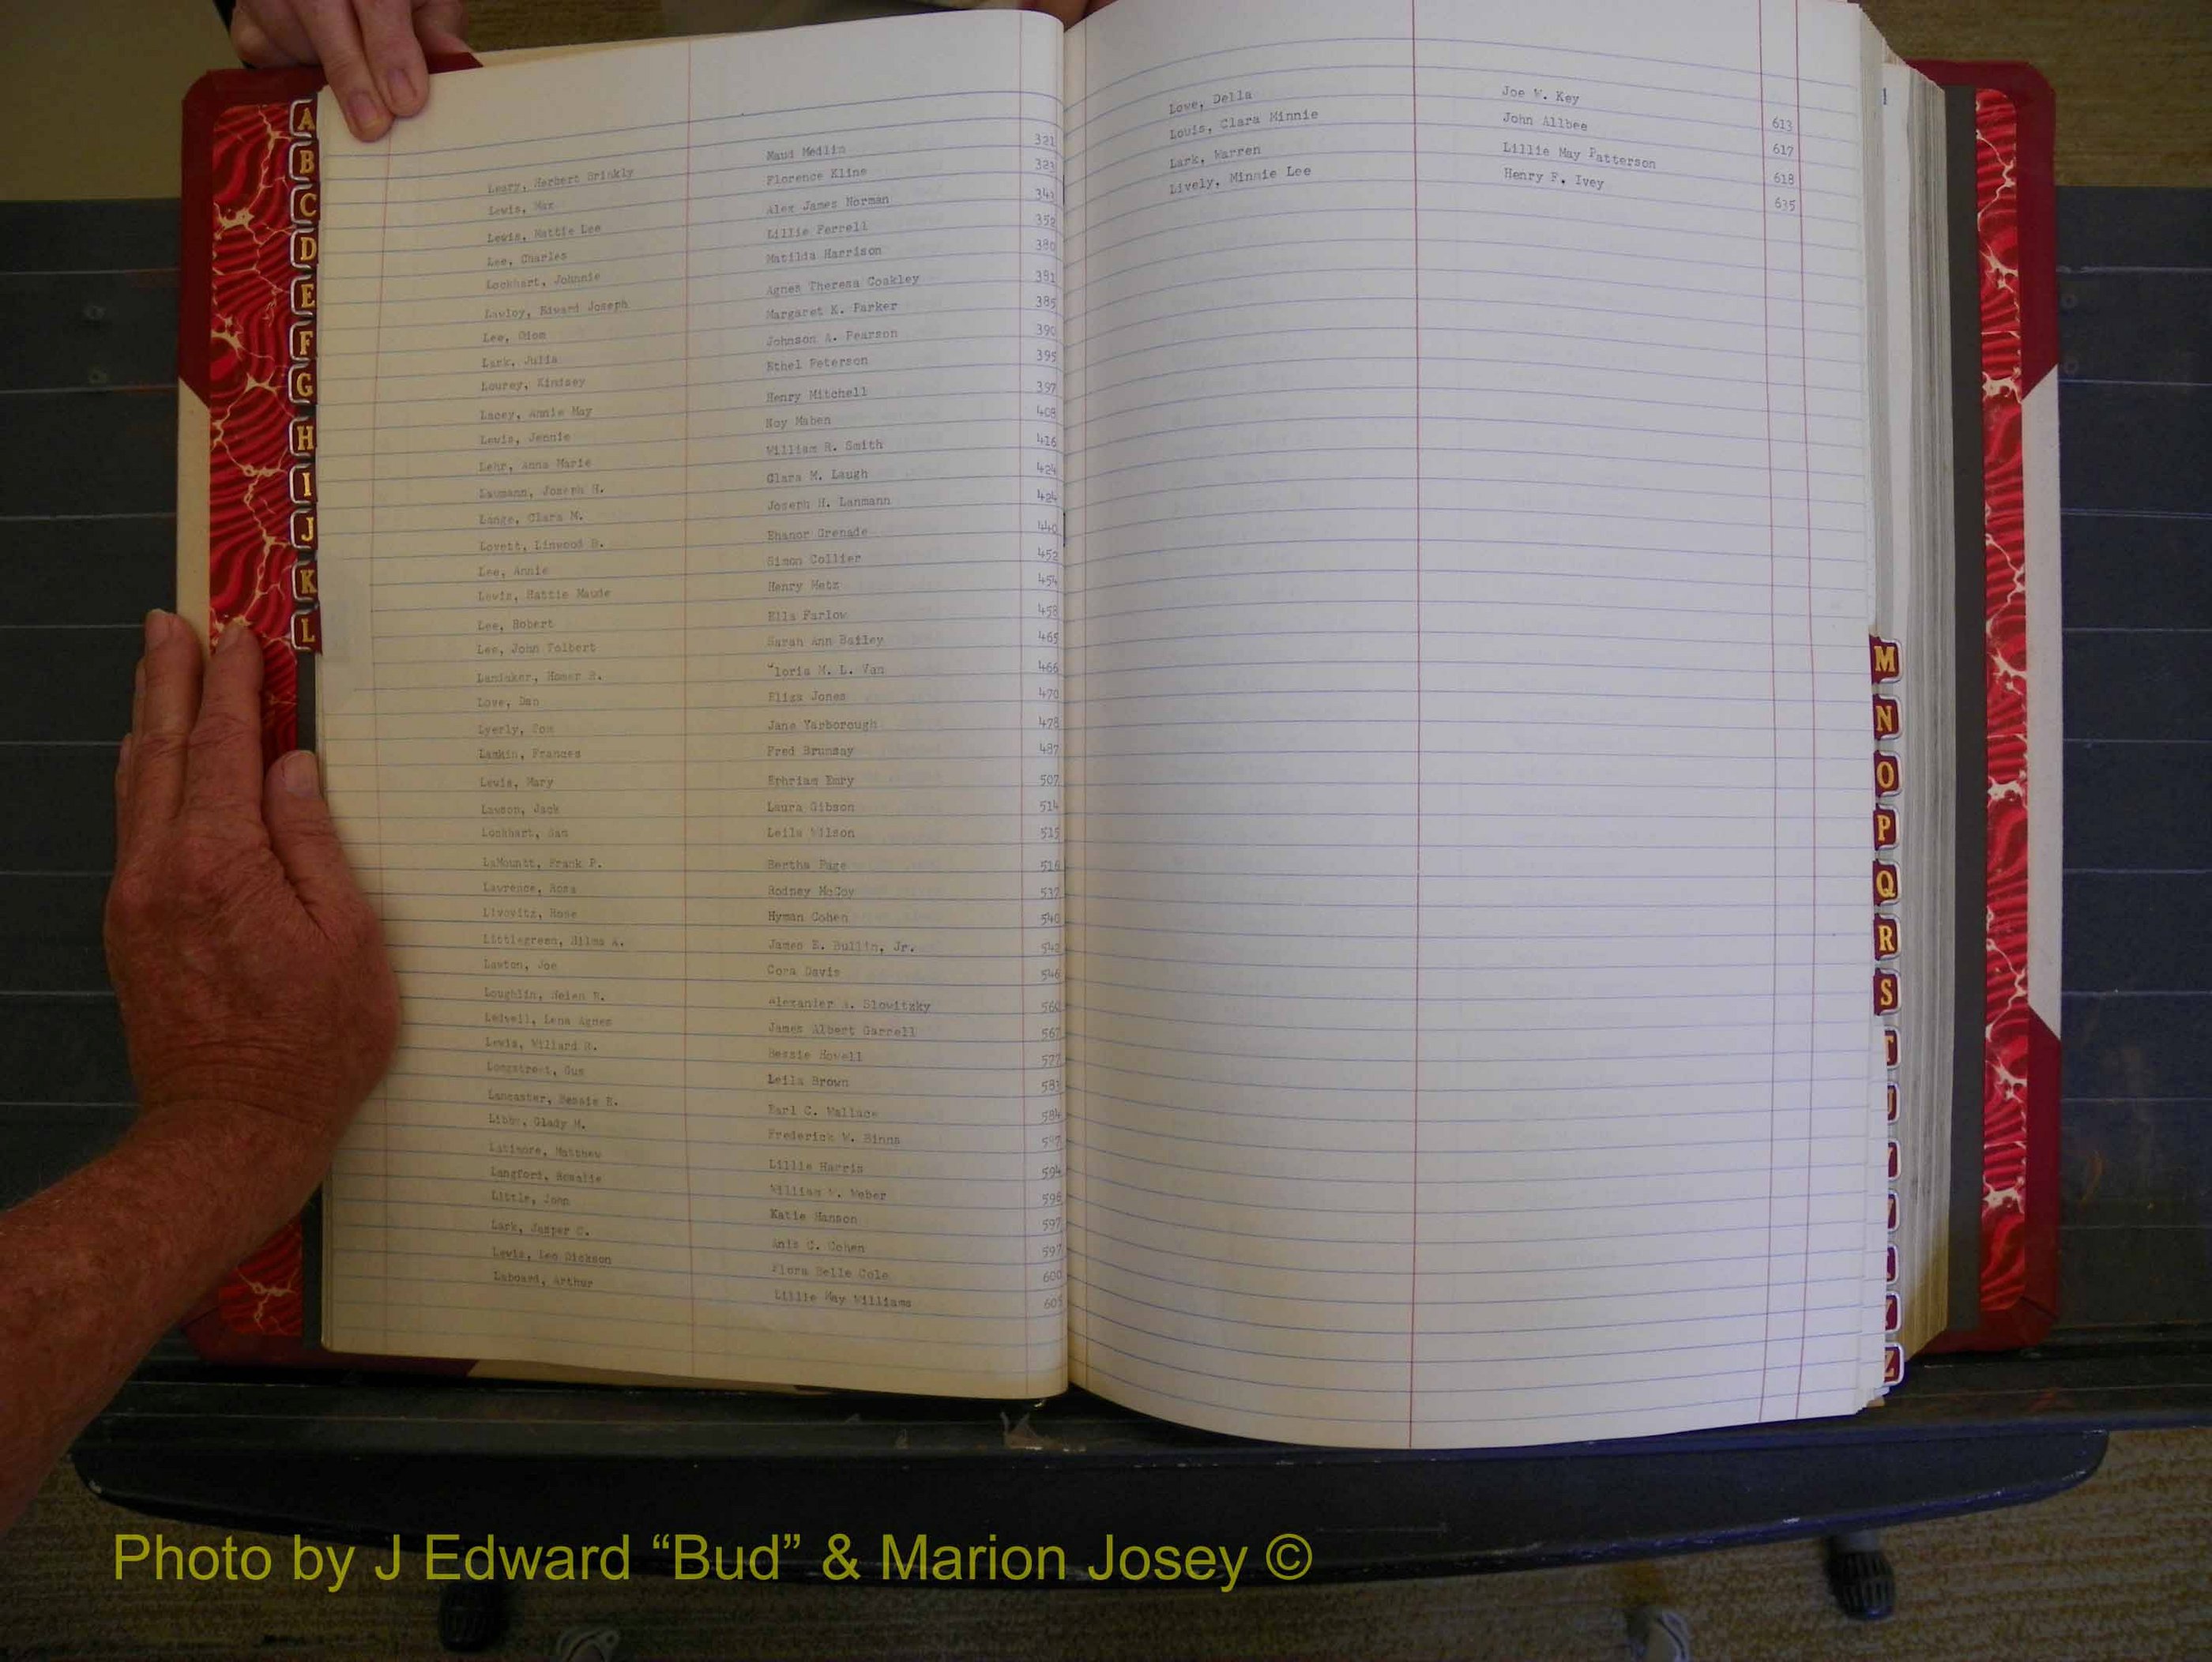 A
B
C
D
E
F
G
H
I
J
K
L
Leary, Herbert Brinkly Maud Medlin 321
Lewis, Max Florence Kline 323
Lewis, Mattie Lee Alex James Norman 343
Lee, Charles Lillie Ferrell 352
Lockhart, Johnnie Matilda Harrison 380
Lawloy, Edward Joseph Agnes Theresa Coakley 381
Lee, Odom Margaret K. Parker 385
Lark, Julia Johnson A. Pearson 390
Lourey, Kindsey Ethel Peterson 395
Lacey, Annie May Henry Mitchell 397
Lewis, Jennie Noy Maben 408
Lehr, Anna Marie William R. Smith 416
Laumann, Joseph H. Clara M. Laugh 424
Lange, Clara M. Joseph H. Lanmann 424
Lovett, Linwood B. Ehanor Grenade 440
Lee, Annie Simon Collier 452
Lewis, Hattie Maude Henry Metz 454
Lee, Robert Ella Farlow 458
Lee, John Tolbert Sarah Ann Bailey 465
Homer loria M. L. Van 466
Love, Dan Eliza Jones 470
Lyerly, Tom Jane Yarborough 478
Lamkin, Frances Fred Brunsay 487
Lewis, Mary Ephriam Emry 507
Lawson, Jack Laura Gibson 514
Lockhart, Sam Leila Wilson 515
LaMountt, Frank P. Bertha Page 516
Lawrence, Rosa Rodney McCoy 537
Livovitz, Rose Hyman Cohen 540
Littlegreen, Wilma A. James E. Bullin, Jr. 542
Lawton, Joe Cora Davis 546
Loughlin, Helen R. Alexander A. Slowitzky 560
Ledwell, Lena Agnes James Albert Garrell 567
Lewis, Willard R. Bessie Howell 577
Longstreet, Gus Leila Brown 583
Lancaster, Bessie R. Earl C. Wallace 584
Libby, Glady M. Frederick W. Binns
Latimore, Matthew Lillie Harris 594
Langford, Rosalie William W. Weber 596
Little, John Katie Hanson 597
Lark, Jasper C. Anie C. Cohen 597
Lewis, Leo Dickson Flora Belle Cole 600
Laboard, Arthur Lillie May Williams 605
Lowe, Della Joe W. Key 613
Louis, Clara Minnie John Allbee 617
Lark, Warren Lillie May Patterson 618
Lively, Minnie Lee Henry F. Ivey 635
M
N
O
P
Q
R
S
T
Z
Photo by J Edward “Bud” & Marion Josey ©